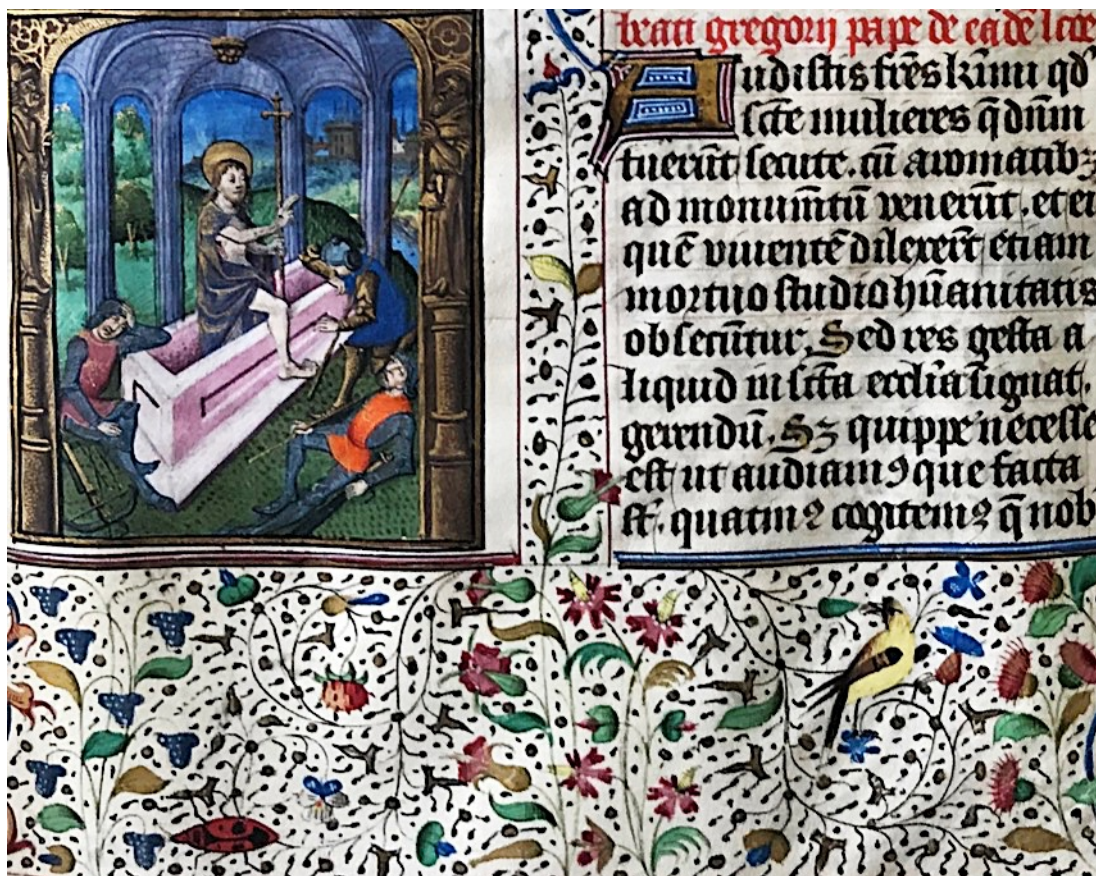 beati gregorij pape de eadē lctē
Audistis frēs kr̄mi qd̓
scte mulieres q̄ dn̄m
fuerūt secute. cū aromatibꝫ
ad monumētū venerūt. et ei
quē viventē dilexerūt etiam
mortuo studio hūanitatis
obsecūtur. Sed res gesta a
liquid in sctā ecclīa signat.
gerendū. Sꝫ quippe necesse
est ut audiamꝰ que facta
st̄. quatinꝰ cogitemꝰ q̄ nob